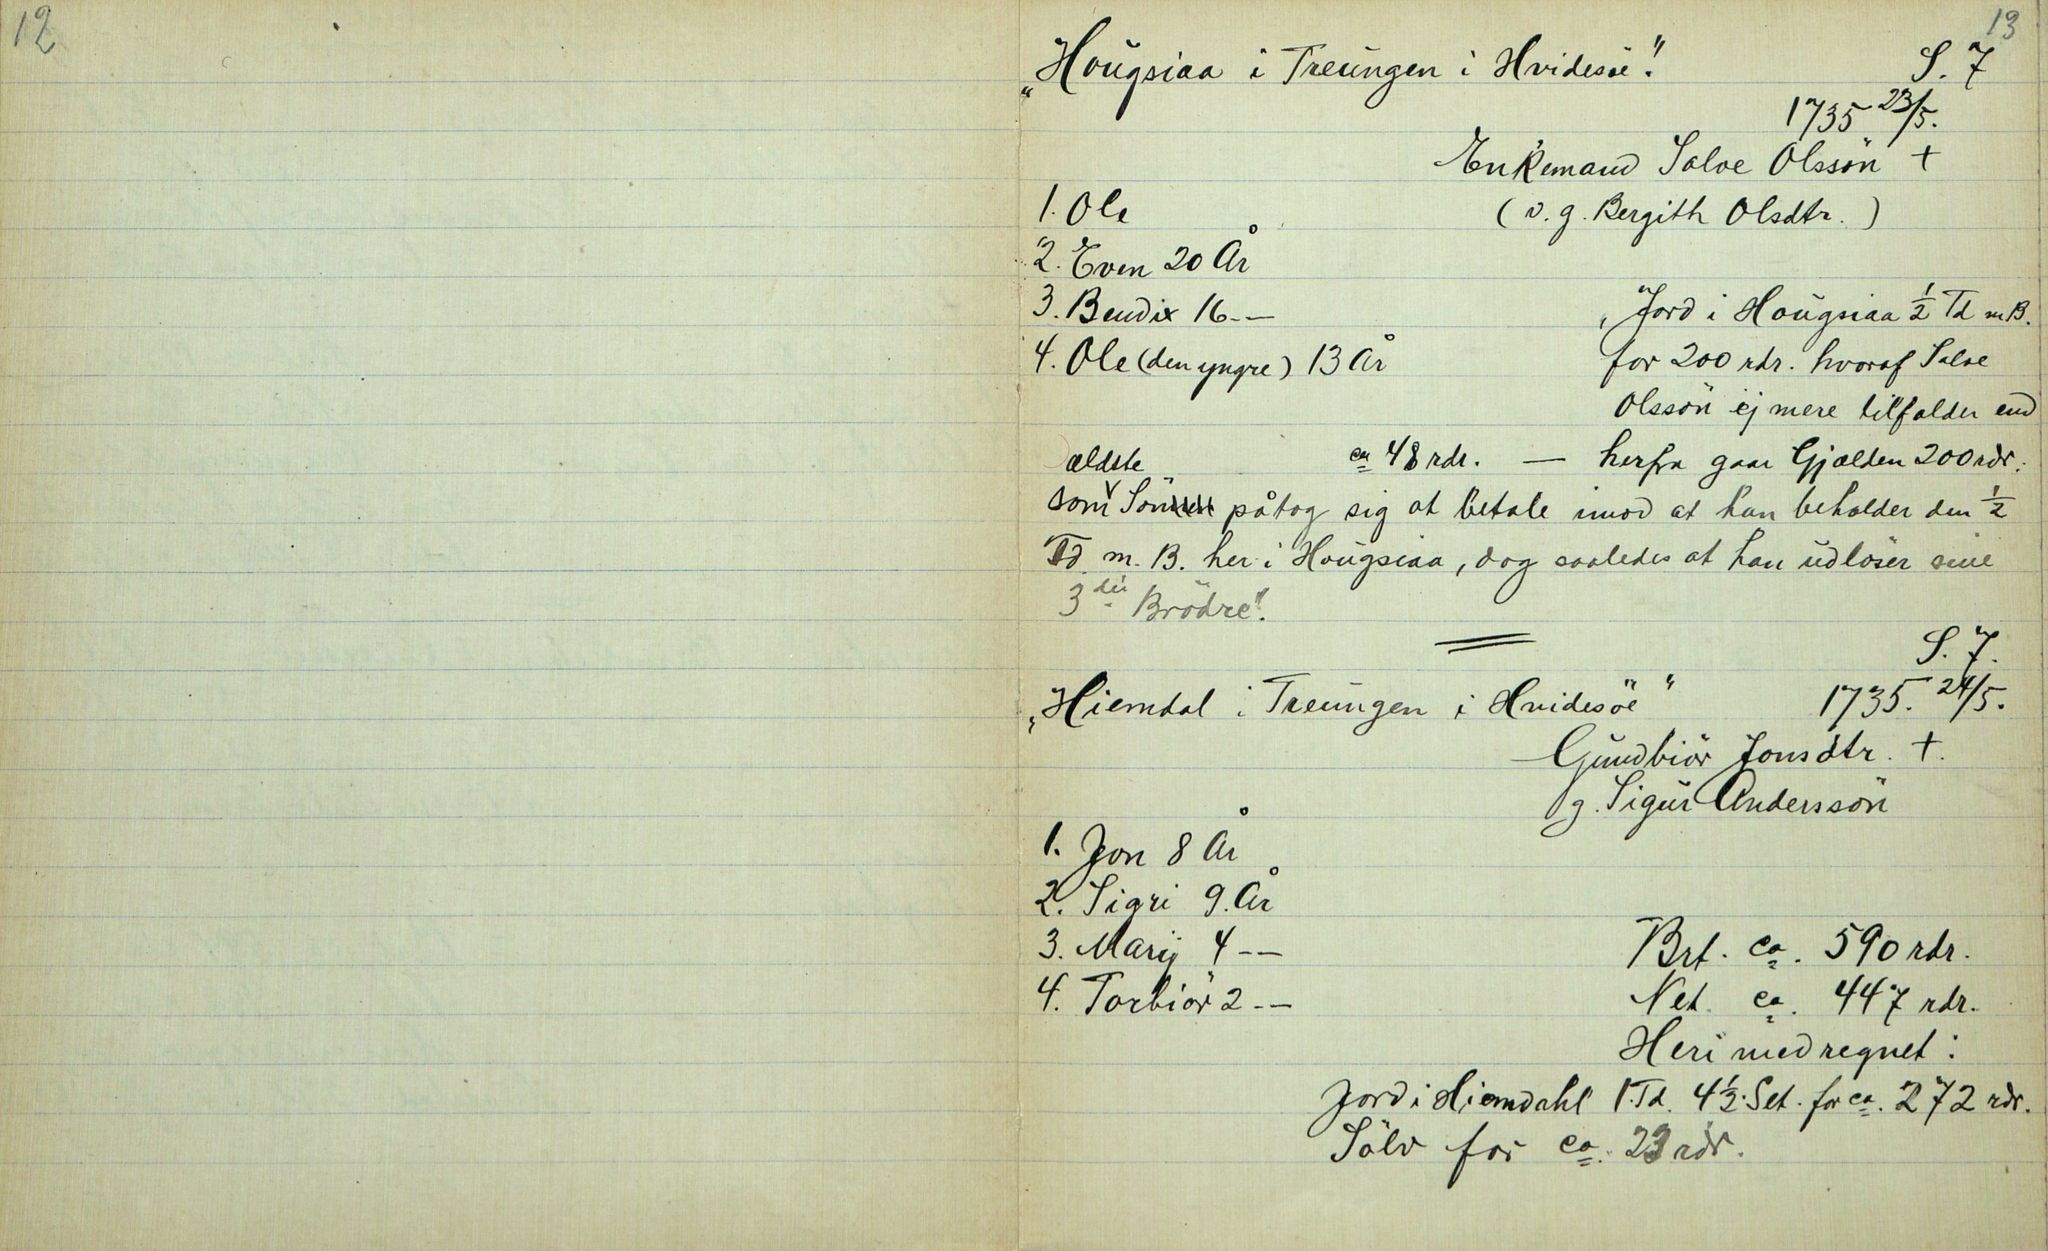 12
13
„Hougsiaa i Treungen i Hvidesöe".
S. 7
1735 23/5.
Enkemand Salve Olssön +
1. Ole
(v. g. Bergith Olsdtr. )
2. Even 20 År
3. Bendix 16 -—
„Jord i Hougsiaa ½ Td m B.
4. Ole (den yngre) 13 År
for 200 rdr. hvoraf Salve
Olssön ej mere tilfalder end
ældste
ca 48 rdr. — herfra gaar Gjælden 200 rdr.
som Sön påtog sig at betale imod at han beholder den ½
Td m. B. her i Hougsiaa, dog saaledes at han udlöser sine
3 de Brödre".
S. 7.
„Hiemdal i Treungen i Hvidesöe"
1735. 24/5.
Gundbiör Jonsdtr. +.
g. Sigur Anderssön
1. Jon 8 År
2. Sigri 9. År
3. Marij 4 -—
Brt. ca. 590 rdr.
4. Torbiör 2 -—
Net. ca. 447 rdr.
Heri medregnet:
Jord i Hiemdahl 1 Td. 4½ Set. for ca. 272 rdr.
Sölv for ca. 23 rdr.